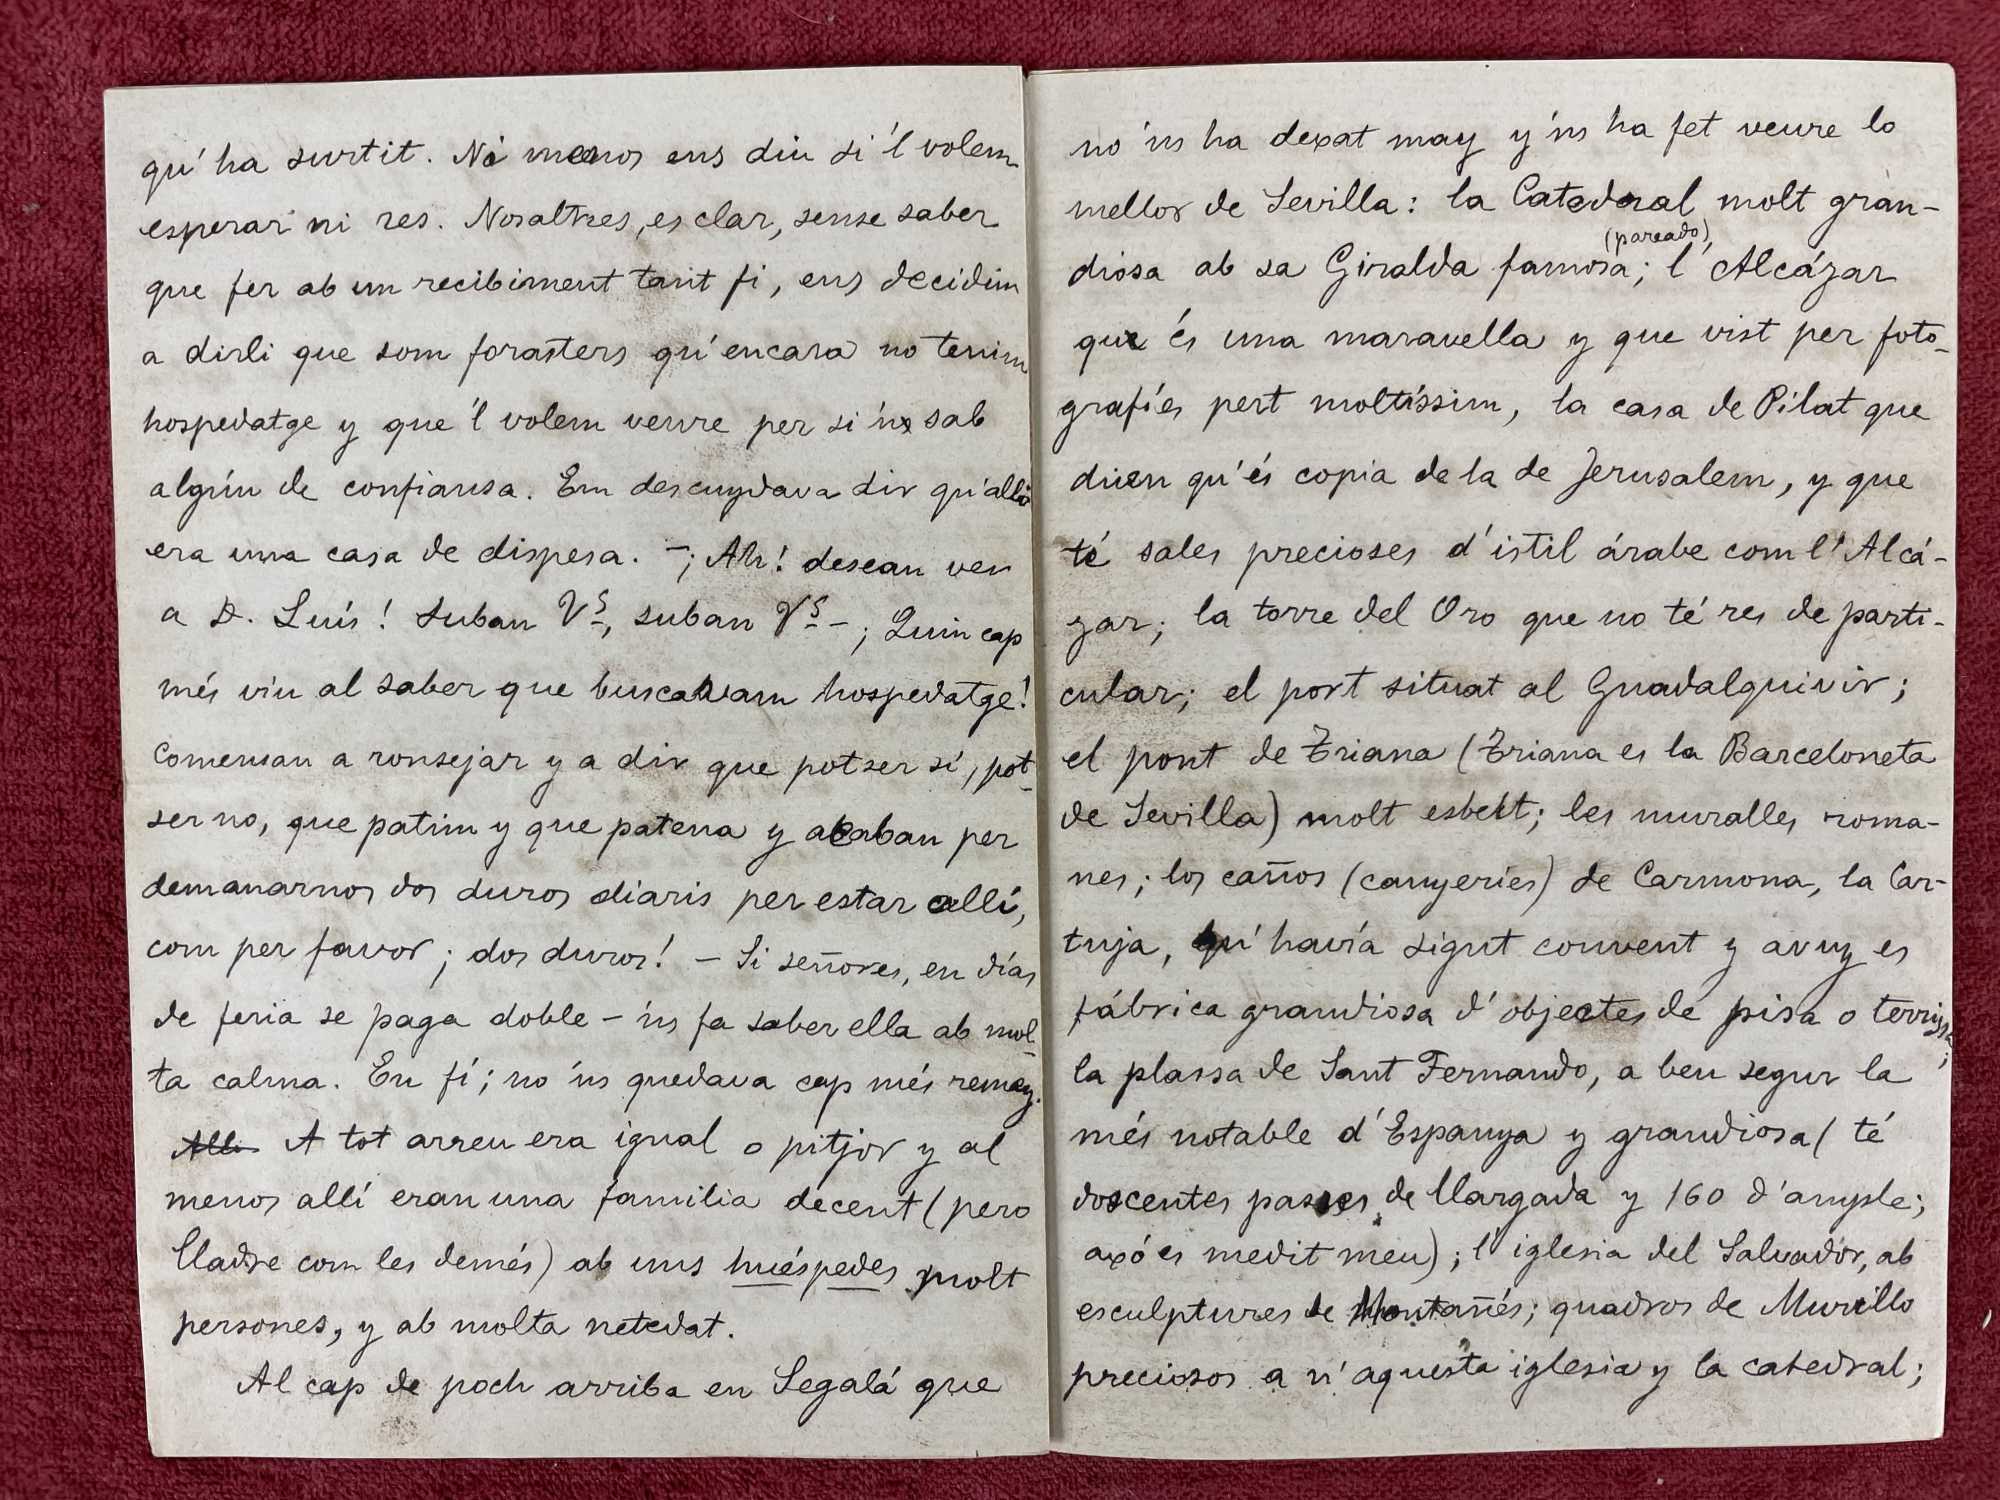 qu'ha surtit. Ni menos ens diu si 'l volem
esperar ni res. Nosaltres, es clar, sense saber
que fer ab un recibiment tant fi, ens decidim
a dirli que som forasters qu'encara no tenim
hospedatge y que 'l volem veure per si 'ns sab
algún de confiansa. Em descuydava dir qu'allò
era una casa de dispesa. –¡Ah! desean ver
a D. Luís! Suban Vs, suban Vs – ¡Quin cap
més viu al saber que buscavam hospedatge!
Comensan a ronsejar y a dir que potser sí, pot-
ser no, que patim y que patena y acaban per
demanarnos dos duros diaris per estar allí,
com per favor ¡dos duros! – Si señores, en días
de feria se paga doble – 'ns fa saber ella ab mol-
ta calma. En fí; no 'ns quedava cap més remey.
Allí A tot arreu era igual o pitjor y al
menos allí eran una familia decent (pero
lladre com les demés) ab uns huéspedes molt
persones, y ab molta netedat.
Al cap de poch arriba en Segalá que
no 'ns ha dexat may y 'ns ha fet veure lo
mellor de Sevilla: la Catedral molt gran-
diosa ab sa Giralda famosa (pareado); l'Alcázar
que és una maravella y que vist per foto-
grafíes pert moltíssim, la casa de Pilat que
diuen qu'és copia de la de Jerusalem, y que
té sales precioses d'istil árabe com l'Alcá-
zar; la torre del Oro que no té res de parti-
cular; el port situat al Guadalquivir;
el pont de Triana (Triana es la Barceloneta
de Sevilla) molt esbelt; les muralles roma-
nes; los caños (canyeries) de Carmona, la Car-
tuja, qu'havía sigut convent y avuy es
fábrica grandiosa d'objectes de pisa o terrissa;
la plassa de Sant Fernando, a ben segur la
més notable d'Espanya y grandiosa (té
doscentes passes de llargada y 160 d'ample;
axó es medit meu); l'iglesia del Salvador, ab
esculptures de Montañés; quadros de Murillo
preciosos a n'aquesta iglesia y la catedral;